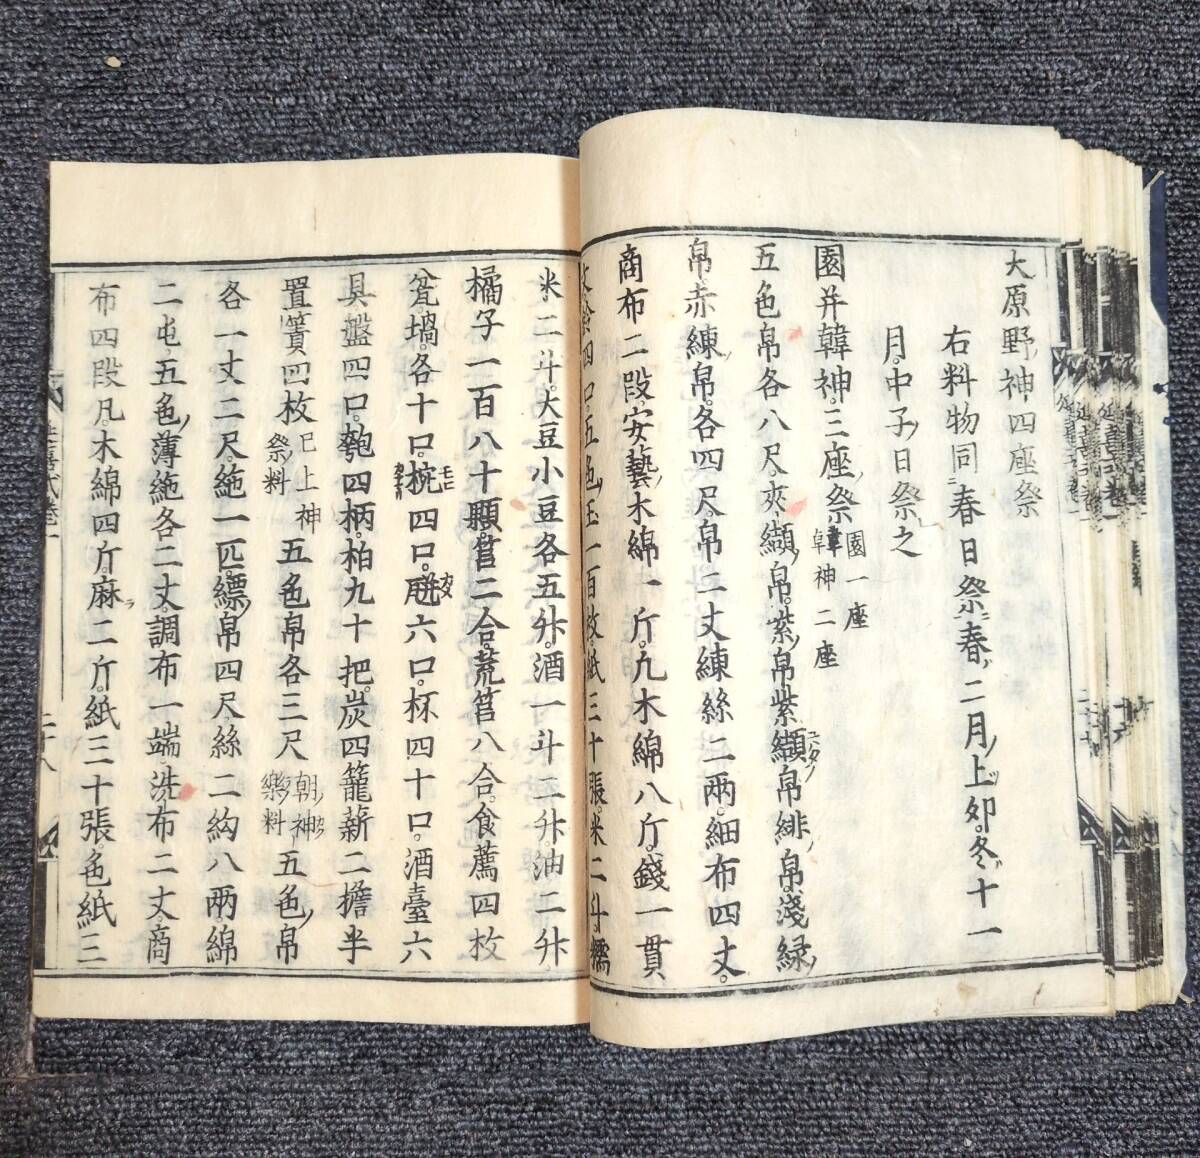 大原野神四座祭
右料物同春日祭春二月上卯冬十一
月中子日祭之
園并韓神三座祭 園一座 韓神二座
五色帛各八尺夾纈帛紫帛紫纈帛緋帛淺緑
帛赤練帛各四尺帛二丈練絲二两細布四丈
商布二段安藝木綿一斤凡木綿八斤錢一貫
四口五色玉一百枚紙三十張米二斗糯
米二斗大豆小豆各五升酒一斗二升油二升
橘子一百八十顆筥二合荒筥八合食薦四枚
瓫堝各十口椀四口瓼六口杯四十口酒臺六
具盤四口匏四柄柏九十把炭四籠薪二擔半
置簀四枚 已上神祭料 五色帛各三尺 朝神樂料 五色帛
各一丈二尺絁一匹縹帛四尺絲二絇八两綿
二屯五色薄絁各二丈調布一端洗布二丈商
布四段凡木綿四斤麻二斤紙三十張色紙三
二十八